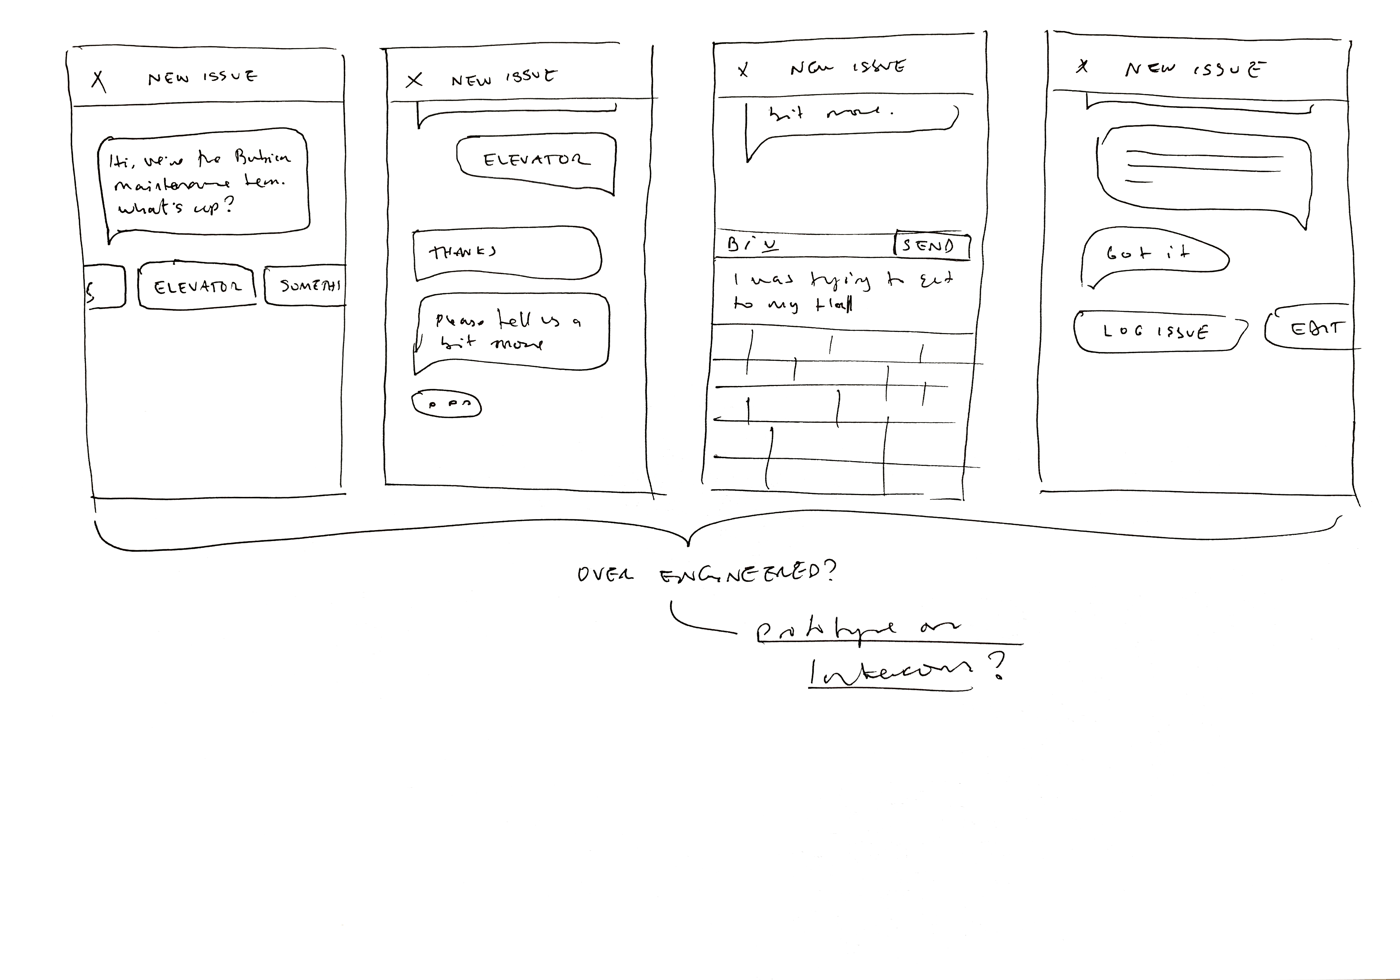 X NEW ISSUE
Hi, we're the
maintenance team.
what's up?
S
ELEVATOR
SOMETHI
X NEW ISSUE
ELEVATOR
THANKS
Please tell us a
bit more
X NEW ISSUE
bit more.
B i U
SEND
I was trying to get
to my flat
X NEW ISSUE
Got it
LOG ISSUE
EDIT
OVER ENGINEERED?
Prototype on
Intercom?